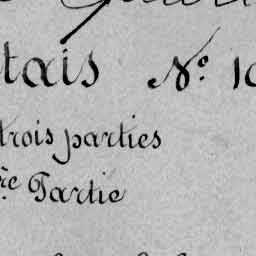 tais N° 10
trois parties
re Partie